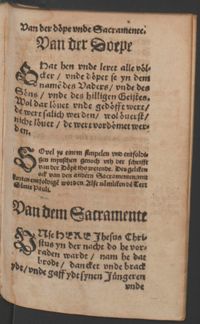 Van der döpe vnde Sacramente.
Van der Doepe
GHat hen vnde leret alle völ-
cker / vnde döpet se yn dem
namē des Vaders / vnde des
Söns / vnde des hilligen Geistes.
Wol dar löuet vnde gedöfft wert /
de wert salich werden / wol öuerst
nicht löuet / de wert vordömet wer-
den.
So vel yn einem simpelen vnd entfoldi-
gen mynschen genoch vth der schrifft
van der Döpe tho wetende. Des geliken
ock van dem andern Sacramente, mit
korten entfoldige worden Alse nömliken de Text
Sünte Pauli.
Van dem Sacramente
VNse HERE Jhesus Chri-
stus yn der nacht do he vor-
raden wardt / nam he dat
brodt / dancket vnde brack
ydt / vnde gaff ydt synen Jüngeren
vnde